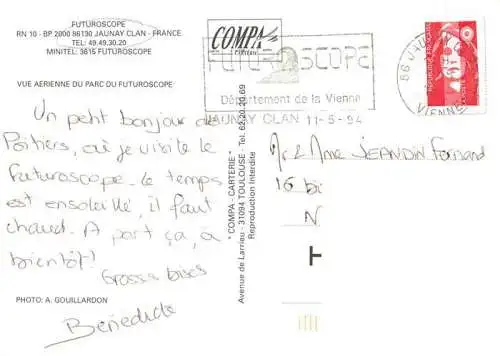 FUTUROSCOPE
RN 10 - BP 2000 86130 JAUNAY CLAN - FRANCE
TEL: 49.49.30.20
MINITEL: 3615 FUTUROSCOPE
VUE AERIENNE DU PARC DU FUTUROSCOPE
Un petit bonjour de
Poitiers, où je visite le
Futuroscope. le temps
est ensoleillé, il fait
chaud. A part ça, à
bientôt!
Grosses bises
Bénédicte
PHOTO: A. GOUILLARDON
COMPA
CARTERIE
FUTUROSCOPE
Département de la Vienne
JAUNAY CLAN 11-5-94
86 JAUNAY CLAN
VIENNE
REPUBLIQUE FRANCAISE
" COMPA - CARTERIE "
Avenue de Larrieu - 31094 TOULOUSE - Tel. 62.20.20.69
Reproduction Interdite
Mr & Mme JEANDIN Fernand
16 bis
N